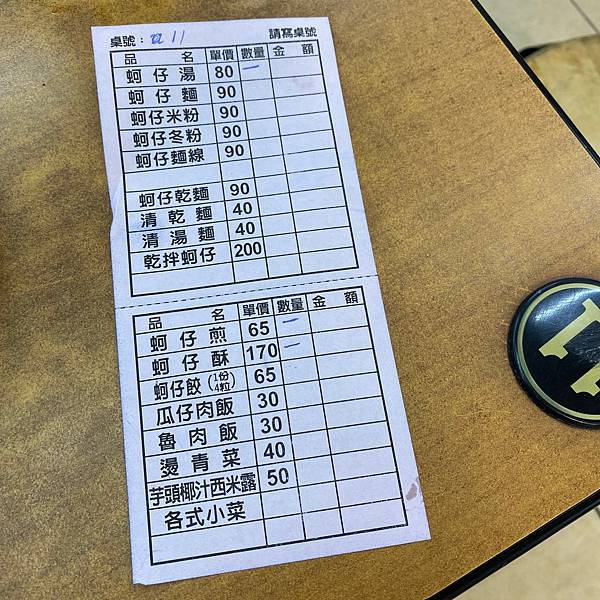 桌號：22 11 請寫桌號
品 名 單價 數量 金 額
蚵仔湯 80 一
蚵仔麵 90
蚵仔米粉 90
蚵仔冬粉 90
蚵仔麵線 90
蚵仔乾麵 90
清乾麵 40
清湯麵 40
乾拌蚵仔 200
品 名 單價 數量 金 額
蚵仔煎 65 一
蚵仔酥 170 一
蚵仔餃(1份4粒) 65
瓜仔肉飯 30
魯肉飯 30
燙青菜 40
芋頭椰汁西米露 50
各式小菜